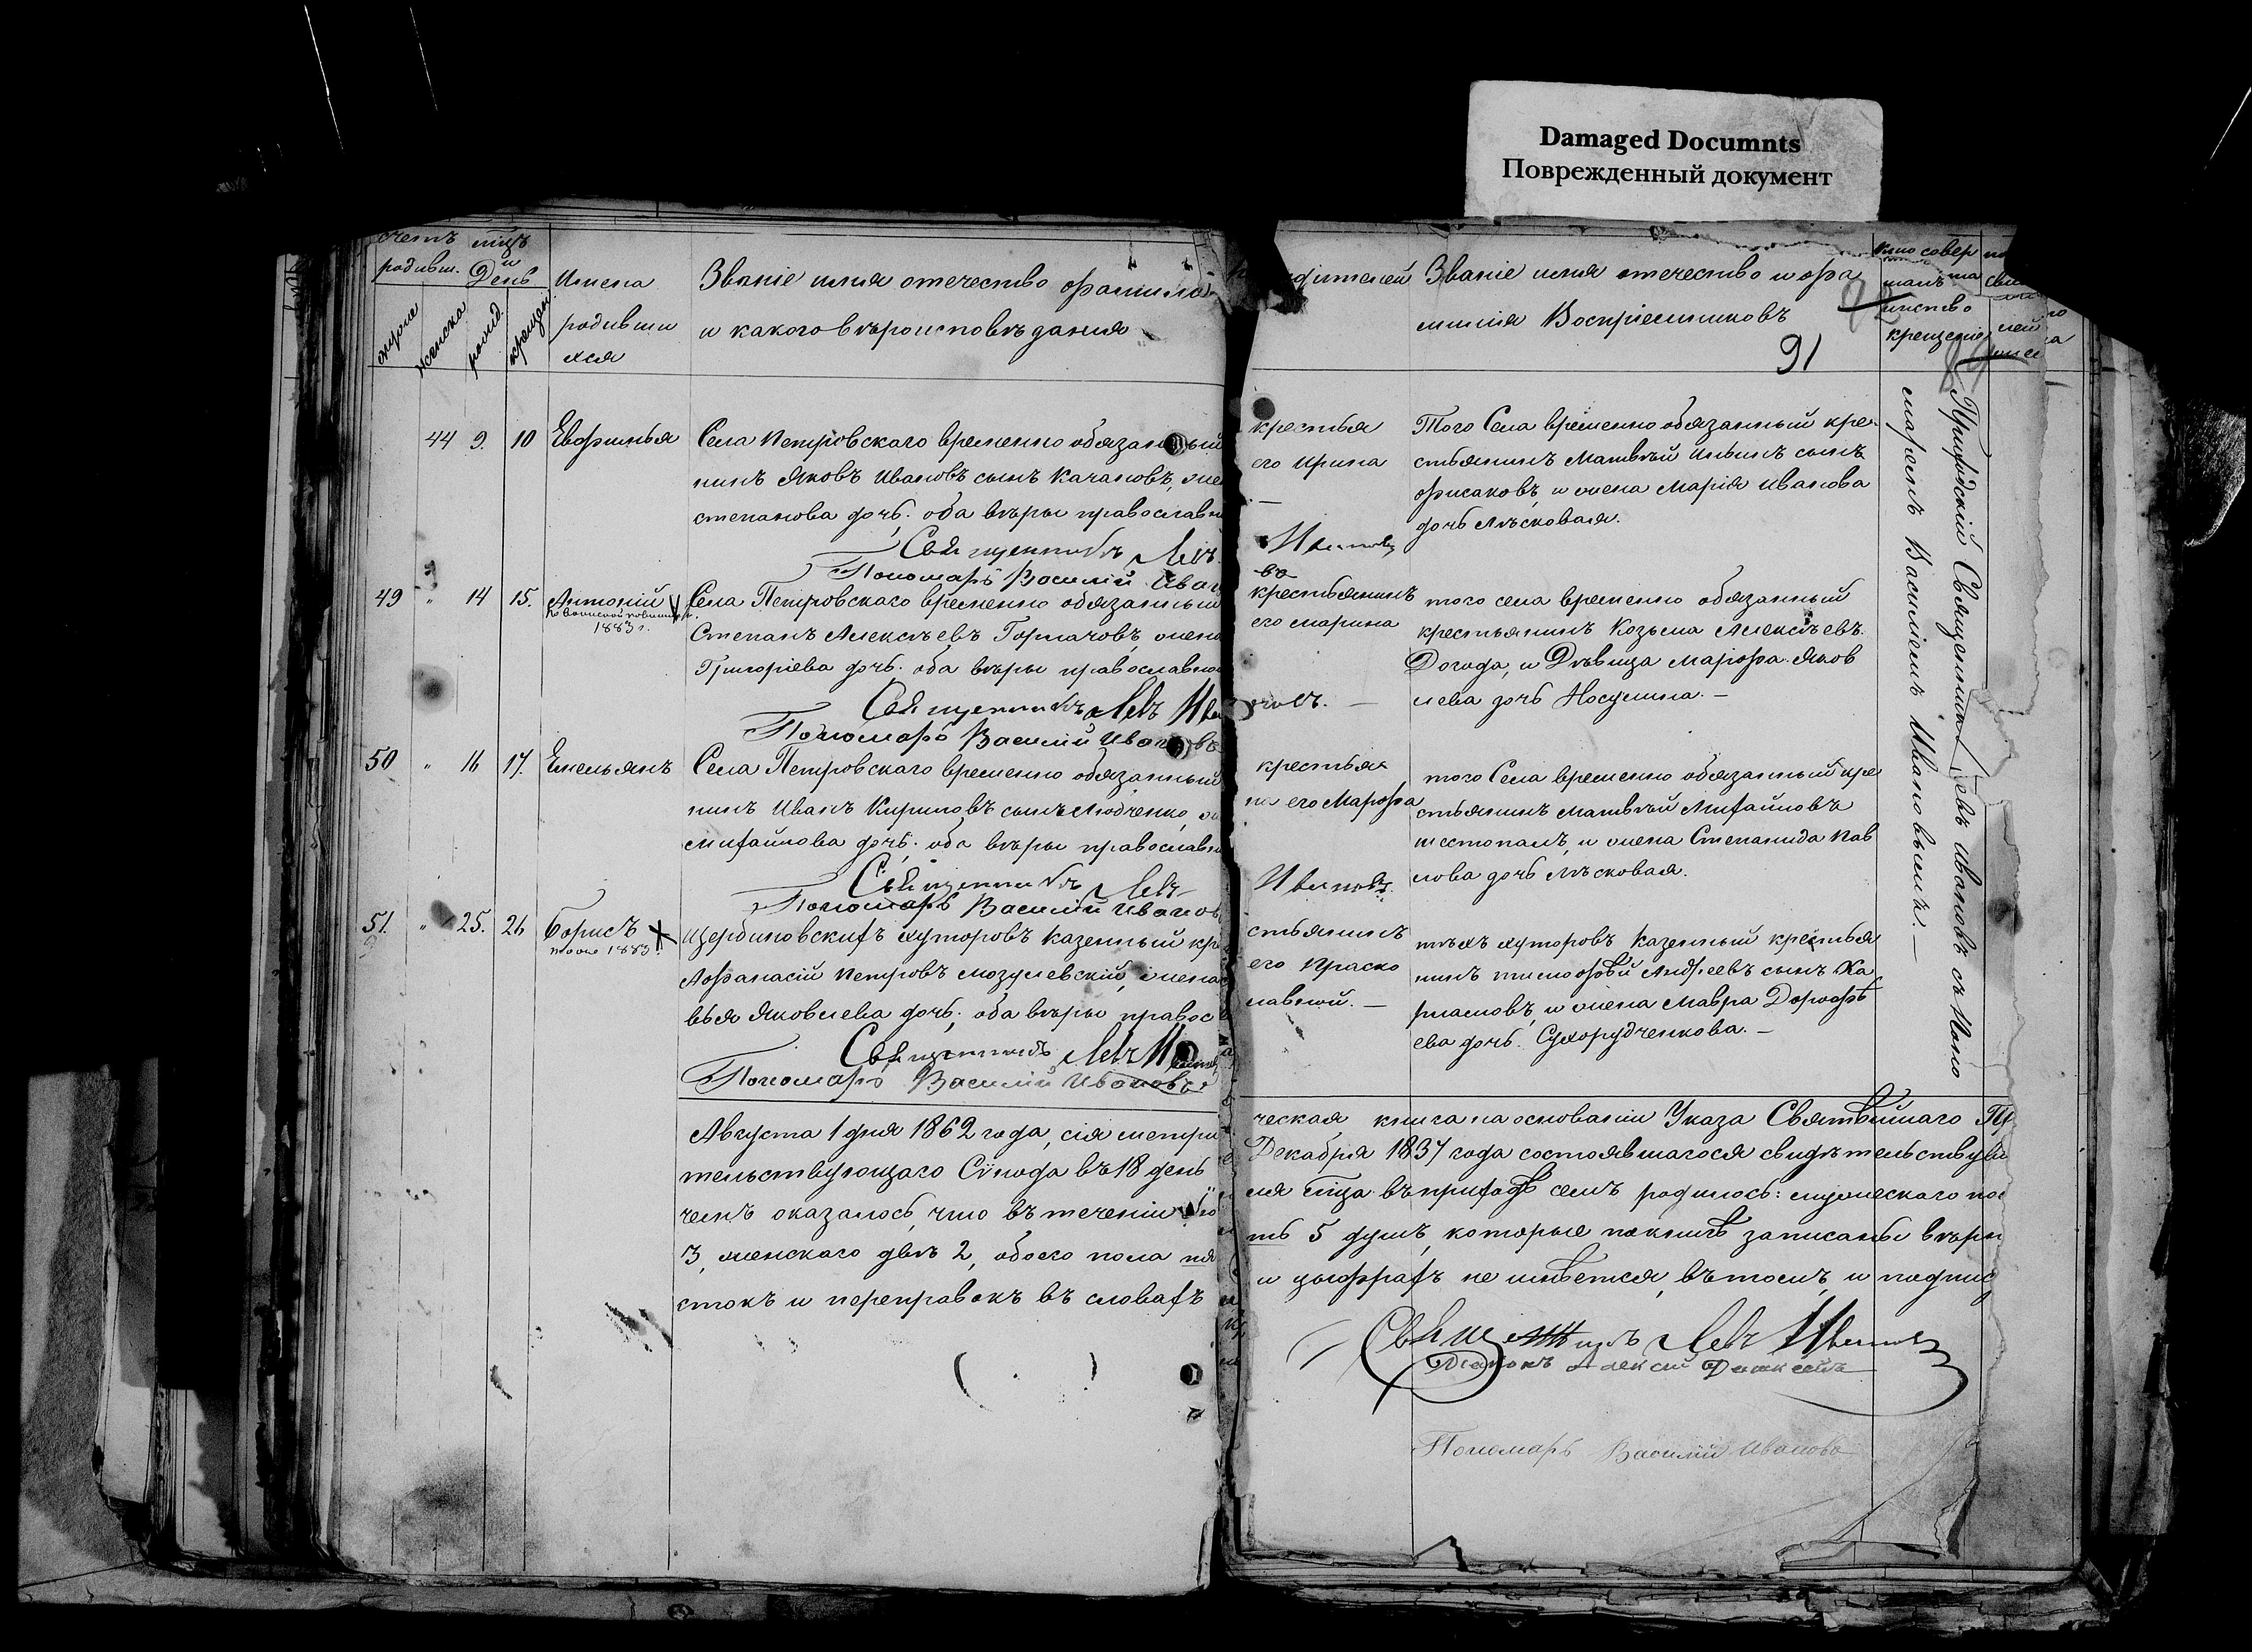 Damaged Documnts
Поврежденный документ
счетъ
родивш.
День
женска
рожд.
крещен.
Имена
родивши
хся
Званіе имя отечество фамилія
и какого вѣроисповѣданія
Званіе имя отечество и фа
милія Воспріемниковъ
91
Кто совер
крещеніе
44 9. 10 Евфимья
Села Петровскаго временно обязанный
крестья
нинъ Яковъ Ивановъ сынъ Качановъ,
его Ирина
степанова дочь. оба вѣры православн
Священникъ Левъ Ивановъ
Пономарь Василій Иванов
Того Села временно обязанный кре
стьянинъ Матвѣй Ильинъ сынъ
Фисаковъ, и жена Марія Иванова
дочь Лѣсковая.
49 " 14 15. Антоній
1883 г.
Села Петровскаго временно обязанный
крестьянинъ
Степанъ Алексѣевъ Горпачовъ, жена
его Марина
Григоріева дочь. оба вѣры православно
Священникъ Левъ Ива
Пономарь Василій Ивановъ
того села временно обязанный
крестьянинъ Козьма Алексѣевъ.
Догода, и Дѣвица Марфа Яков
лева дочь Носулина. —
50 " 16 17. Емельянъ
Села Петровскаго временно обязанный
крестья
нинъ Иванъ Кириловъ сынъ Людченко,
на его Марфа
Михайлова дочь. оба вѣры православн
Священникъ Левъ Ивановъ
Пономарь Василій Иванов
того Села временно обязанный кре
стьянинъ Матвѣй Михайловъ
шестопалъ, и жена Степанида Пав
лова дочь Лѣсковая.
51. " 25. 26 Борисъ
1883
Щербиновскихъ хуторовъ казенный кр
стьянинъ
Афанасій Петровъ Мозулевскій, жена
его Праско
вья Яковлева дочь, оба вѣры правос
лавной. —
Священникъ Левъ Ивановъ
Пономарь Василій Ивановъ
тѣхъ хуторовъ казенный крестья
нинъ Тимофѣй Андреевъ сынъ Ха
рламовъ, и жена Мавра Дорофѣ
ева дочь. Сухорудченкова. —
Приходскій Священникъ Левъ Ивановъ съ Поно
маремъ Василіемъ Ивановымъ. —
Августа 1 дня 1862 года, сія метри
ческая книга на основаніи Указа Святѣйшаго Пр
тельствующаго Сѵнода въ 18 день
Декабря 1837 года состоявшагося свидѣтельствува
чемъ оказалось, что въ теченіи
ля мца въ приходѣ семъ родилось: мужескаго пол
3, женскаго двѣ 2, обоего пола пя
ть 5 душъ, которые по книгѣ записаны вѣрн
стокъ и переправокъ въ словахъ
и цыфрахъ не имѣется, въ томъ, и подпис
Священникъ Левъ Ивановъ
Пономарь Василій Ивановъ